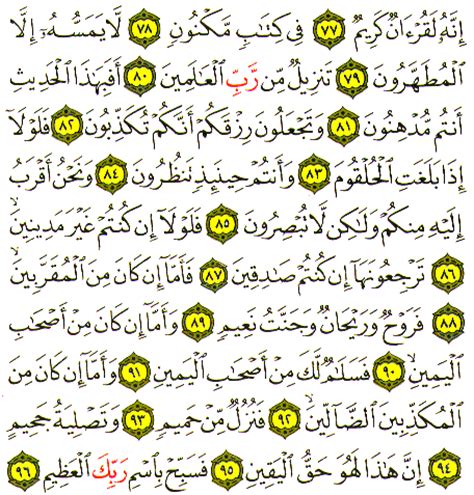 إِنَّهُۥ لَقُرۡءَانٞ كَرِيمٞ ٧٧ فِي كِتَٰبٖ مَّكۡنُونٖ ٧٨ لَّا يَمَسُّهُۥٓ إِلَّا
ٱلۡمُطَهَّرُونَ ٧٩ تَنزِيلٞ مِّن رَّبِّ ٱلۡعَٰلَمِينَ ٨٠ أَفَبِهَٰذَا ٱلۡحَدِيثِ
أَنتُم مُّدۡهِنُونَ ٨١ وَتَجۡعَلُونَ رِزۡقَكُمۡ أَنَّكُمۡ تُكَذِّبُونَ ٨٢ فَلَوۡلَآ
إِذَا بَلَغَتِ ٱلۡحُلۡقُومَ ٨٣ وَأَنتُمۡ حِينَئِذٖ تَنظُرُونَ ٨٤ وَنَحۡنُ أَقۡرَبُ
إِلَيۡهِ مِنكُمۡ وَلَٰكِن لَّا تُبۡصِرُونَ ٨٥ فَلَوۡلَآ إِن كُنتُمۡ غَيۡرَ مَدِينِينَ
٨٦ تَرۡجِعُونَهَآ إِن كُنتُمۡ صَٰدِقِينَ ٨٧ فَأَمَّآ إِن كَانَ مِنَ ٱلۡمُقَرَّبِينَ
٨٨ فَرَوۡحٞ وَرَيۡحَانٞ وَجَنَّتُ نَعِيمٖ ٨٩ وَأَمَّآ إِن كَانَ مِنۡ أَصۡحَٰبِ
ٱلۡيَمِينِ ٩٠ فَسَلَٰمٞ لَّكَ مِنۡ أَصۡحَٰبِ ٱلۡيَمِينِ ٩١ وَأَمَّآ إِن كَانَ مِنَ
ٱلۡمُكَذِّبِينَ ٱلضَّآلِّينَ ٩٢ فَنُزُلٞ مِّنۡ حَمِيمٖ ٩٣ وَتَصۡلِيَةُ جَحِيمٍ
٩٤ إِنَّ هَٰذَا لَهُوَ حَقُّ ٱلۡيَقِينِ ٩٥ فَسَبِّحۡ بِٱسۡمِ رَبِّكَ ٱلۡعَظِيمِ ٩٦